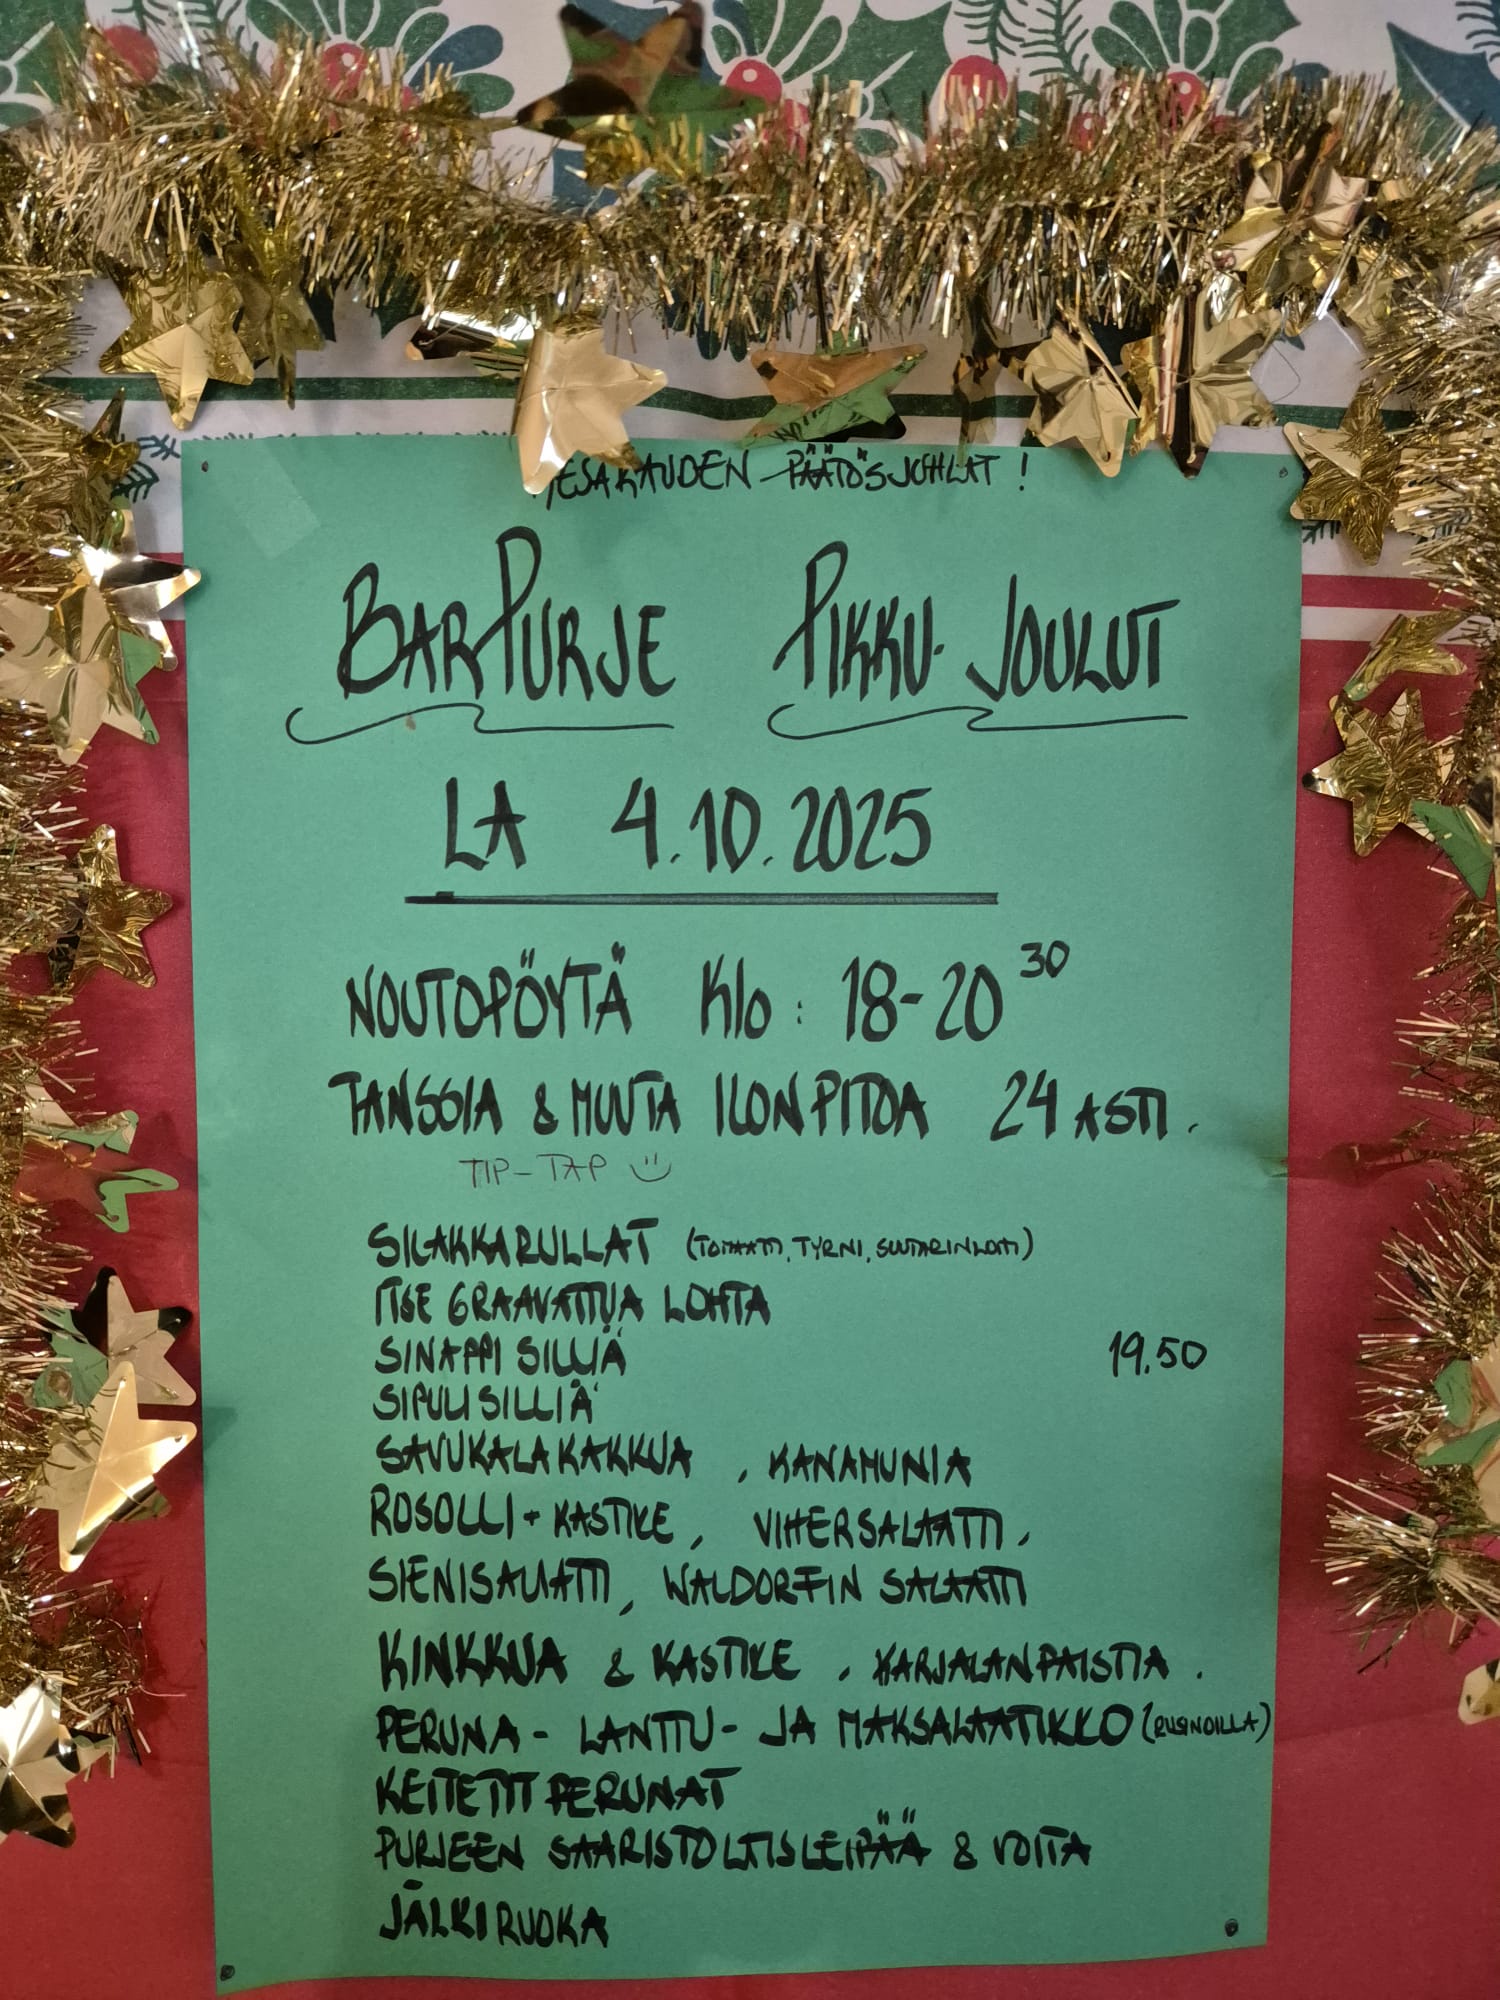 KESÄKAUDEN PÄÄTÖSJUHLAT !
BARPURJE PIKKU-JOULUT
LA 4.10.2025
NOUTOPÖYTÄ Klo : 18-20 30
TANSSIA & MUUTA ILONPITOA 24 ASTI.
TIP-TAP
SILAKKARULLAT (TOMAATTI, TYRNI, SUUTARINLOHI)
ITSE GRAAVATTUA LOHTA
SINAPPI SILLIÄ 19.50
SIPULI SILLIÄ
SAVUKALAKAKKUA , KANAMUNIA
ROSOLLI + KASTIKE , VIHERSALAATTI ,
SIENISALAATTI , WALDORFIN SALAATTI
KINKKUA & KASTIKE , KARJALANPAISTIA .
PERUNA - LANTTU - JA MAKSALAATIKKO (RUSINOILLA)
KEITETYT PERUNAT
PURJEEN SAARISTOLAISLEIPÄÄ & VOITA
JÄLKIRUOKA